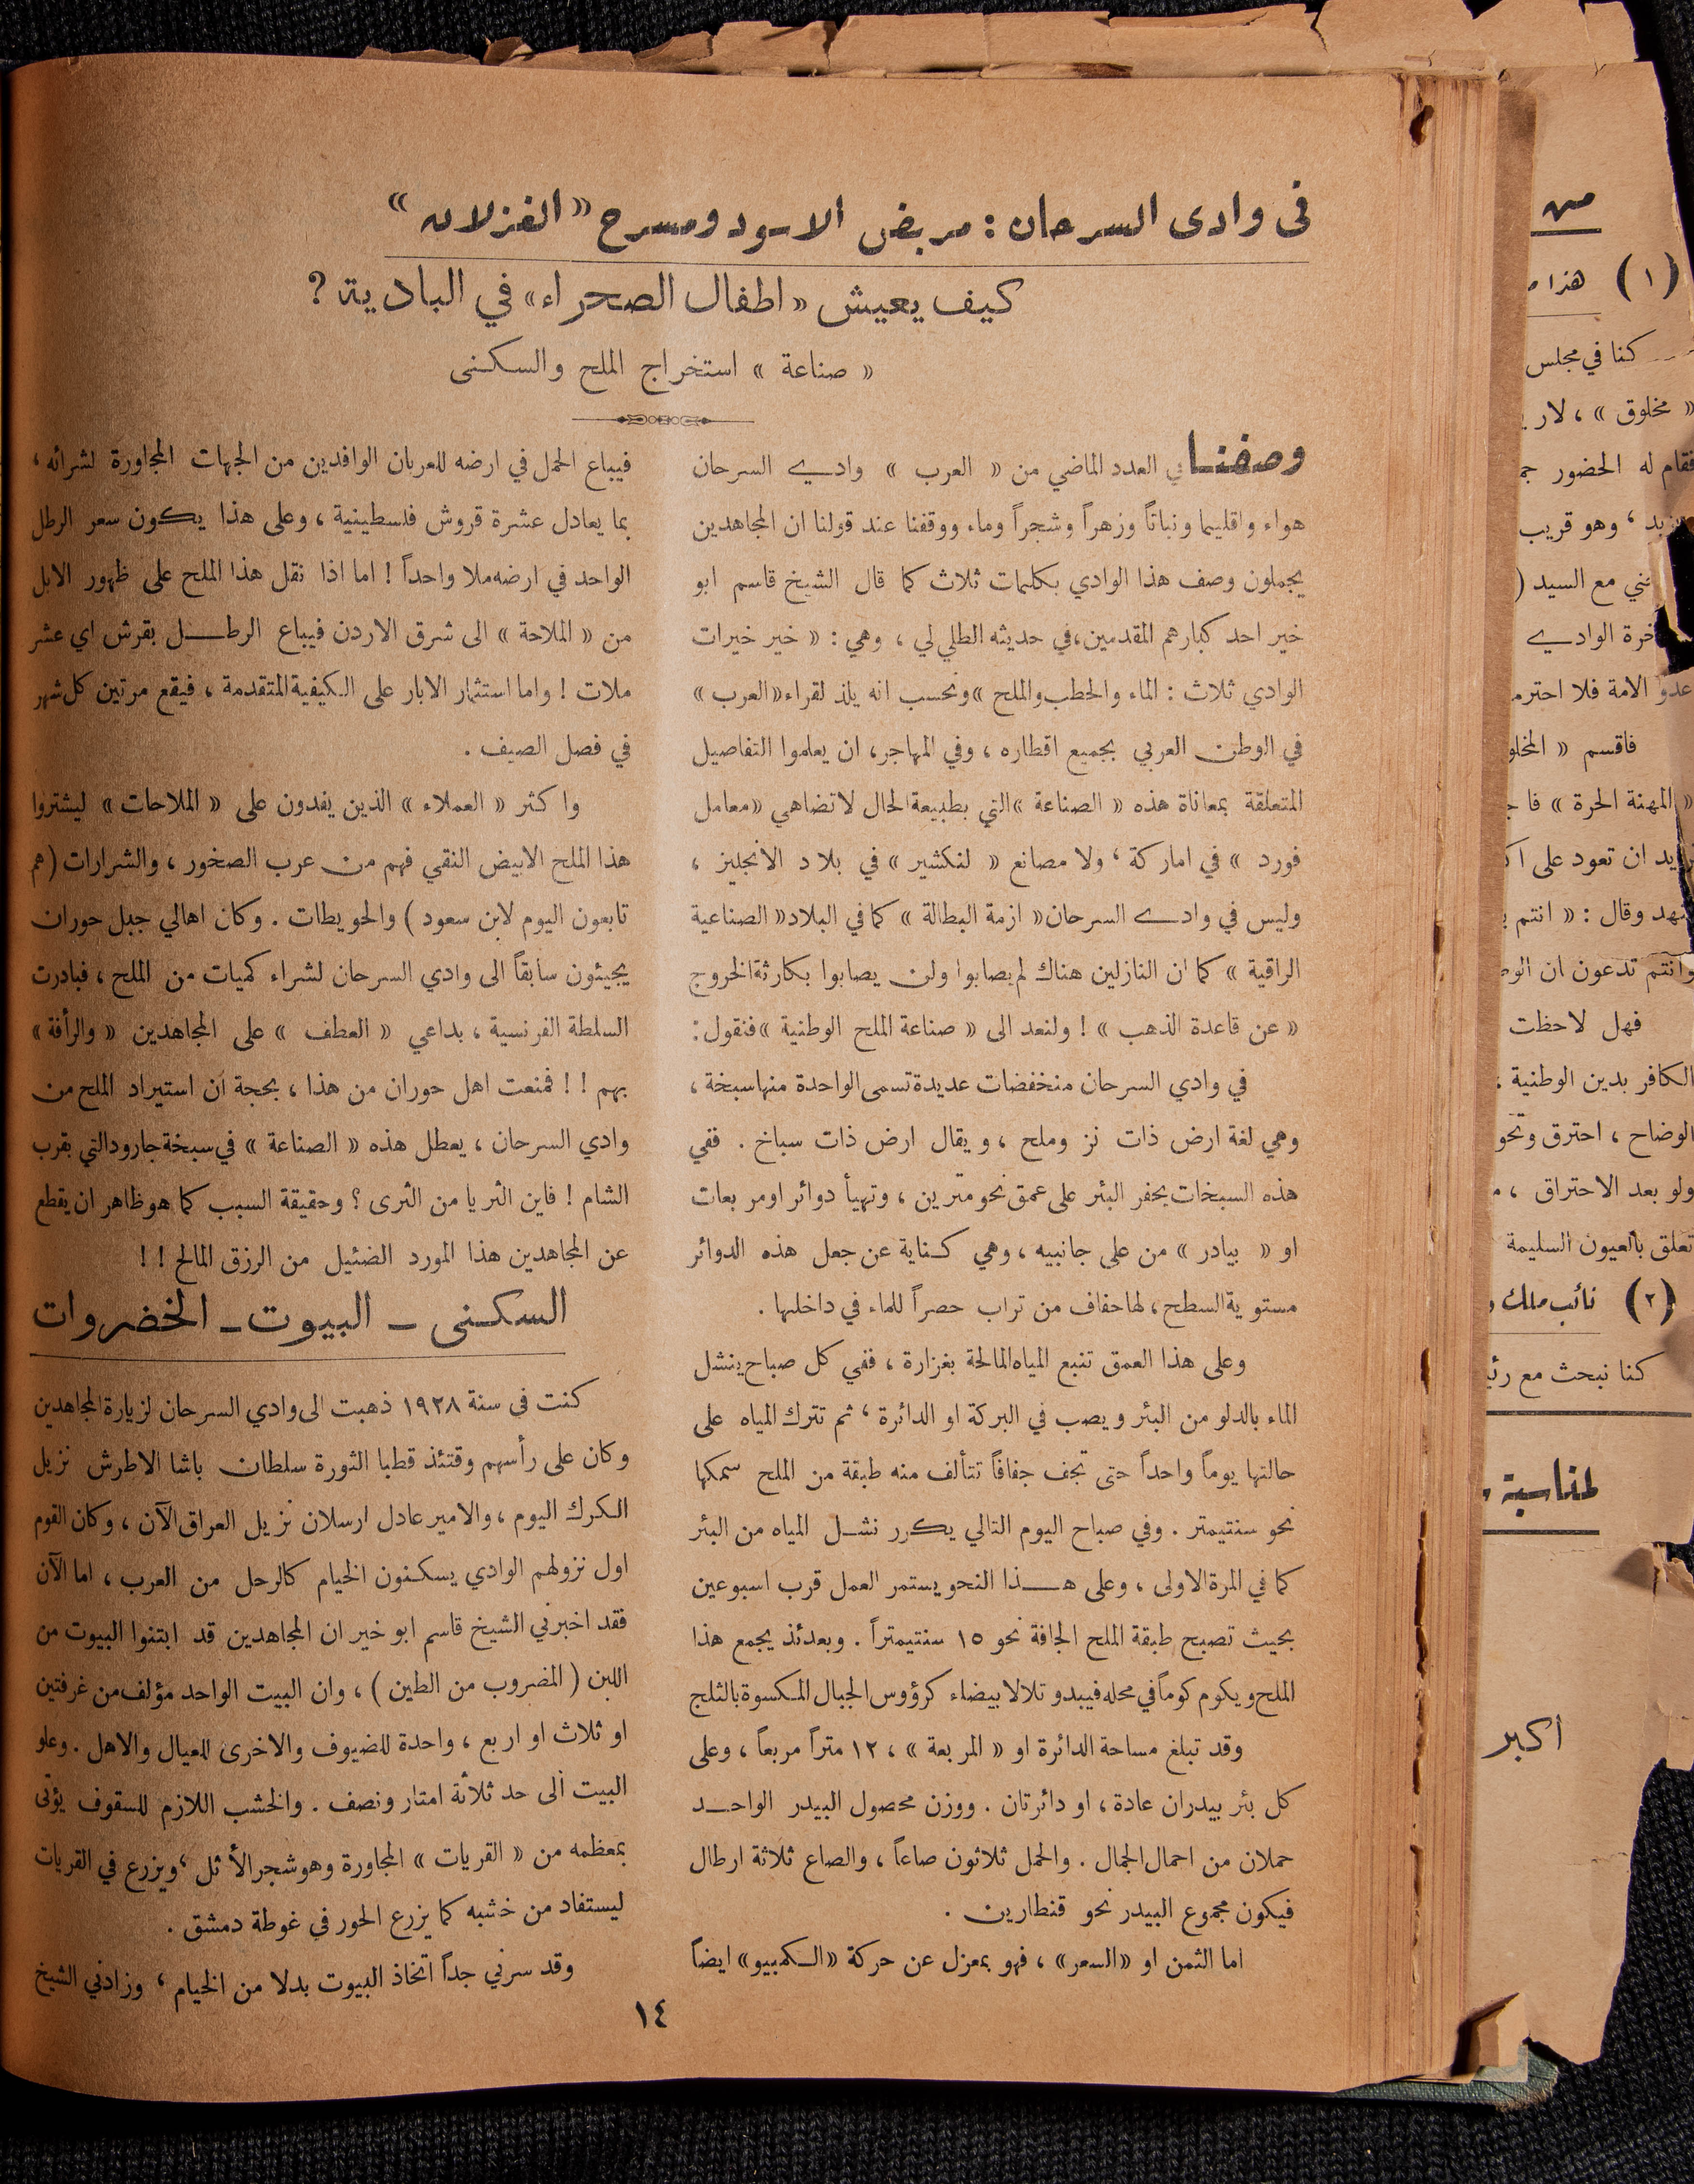 في وادي السرحان : مربض الاسود ومسرح «الغزلان»
كيف يعيش «اطفال الصحراء» في البادية ?
« صناعة » استخراج الملح والسكنى
وصفنا في العدد الماضي من « العرب » وادي السرحان
هواء واقليما ونباتاً وزهراً وشجراً وماء ووقفنا عند قولنا ان المجاهدين
يجملون وصف هذا الوادي بكلمات ثلاث كما قال الشيخ قاسم ابو
خير احد كبارهم المقدمين، في حديثه الطلي لي ، وهي : « خير خيرات
الوادي ثلاث : الماء والحطب والملح » ونحسب انه يلذ لقراء «العرب »
في الوطن العربي بجميع اقطاره ، وفي المهاجر، ان يعلموا التفاصيل
المتعلقة بمعاناة هذه « الصناعة » التي بطبيعة الحال لا تضاهي «معامل
فورد » في اماركة ، ولا مصانع « لنكشير » في بلاد الانجليز ،
وليس في وادي السرحان « ازمة البطالة » كما في البلاد « الصناعية
الراقية » كما ان النازلين هناك لم يصابوا ولن يصابوا بكارثة الخروج
« عن قاعدة الذهب » ! ولنعد الى « صناعة الملح الوطنية » فنقول :
في وادي السرحان منخفضات عديدة تسمى الواحدة منها سبخة ،
وهي لغة ارض ذات نز وملح ، ويقال ارض ذات سباخ . ففي
هذه السبخات يحفر البئر على عمق نحو مترين ، وتهيأ دوائر او مربعات
او « بيادر » من على جانبيه ، وهي كناية عن جعل هذه الدوائر
مستوية السطح ، لها حفاف من تراب حصراً للماء في داخلها .
وعلى هذا العمق تنبع المياه المالحة بغزارة ، ففي كل صباح ينشل
الماء بالدلو من البئر ويصب في البركة او الدائرة ، ثم تترك المياه على
حالتها يوماً واحداً حتى تجف جفافاً تتألف منه طبقة من الملح سمكها
نحو سنتيمتر . وفي صباح اليوم التالي يكرر نشل المياه من البئر
كما في المرة الاولى ، وعلى هذا النحو يستمر العمل قرب اسبوعين
بحيث تصبح طبقة الملح الجافة نحو ١٥ سنتيمتراً . وبعدئذ يجمع هذا
الملح ويكوم كوماً في محله فيبدو تلالا بيضاء كرؤوس الجبال المكسوة بالثلج
وقد تبلغ مساحة الدائرة او « المربعة » ، ١٢ متراً مربعاً ، وعلى
كل بئر بيدران عادة ، او دائرتان . ووزن محصول البيدر الواحد
حملان من احمال الجمال . والحمل ثلاثون صاعاً ، والصاع ثلاثة ارطال
فيكون مجموع البيدر نحو قنطارين .
اما الثمن او «السعر» ، فهو بمعزل عن حركة «الكمبيو» ايضاً
فيباع الحمل في ارضه للعربان الوافدين من الجهات المجاورة لشرائه ،
بما يعادل عشرة قروش فلسطينية ، وعلى هذا يكون سعر الرطل
الواحد في ارضه ملا واحداً ! اما اذا نقل هذا الملح على ظهور الابل
من « الملاحة » الى شرق الاردن فيباع الرطل بقرش اي عشر
ملات ! واما استثمار الابار على الكيفية المتقدمة ، فيقع مرتين كل شهر
في فصل الصيف .
واكثر « العملاء » الذين يفدون على « الملاحات » ليشتروا
هذا الملح الابيض النقي فهم من عرب الصخور ، والشرارات ( هم
تابعون اليوم لابن سعود ) والحويطات . وكان اهالي جبل حوران
يجيئون سابقاً الى وادي السرحان لشراء كميات من الملح ، فبادرت
السلطة الفرنسية ، بداعي « العطف » على المجاهدين « والرأفة »
بهم ! ! فمنعت اهل حوران من هذا ، بحجة ان استيراد الملح من
وادي السرحان ، يعطل هذه « الصناعة » في سبخة جارود التي بقرب
الشام ! فاين الثريا من الثرى ؟ وحقيقة السبب كما هو ظاهر ان يقطع
عن المجاهدين هذا المورد الضئيل من الرزق المالح ! !
السكنى - البيوت - الخضروات
كنت في سنة ١٩٢٨ ذهبت الى وادي السرحان لزيارة المجاهدين
وكان على رأسهم وقتئذ قطبا الثورة سلطان باشا الاطرش نزيل
الكرك اليوم ، والامير عادل ارسلان نزيل العراق الآن ، وكان القوم
اول نزولهم الوادي يسكنون الخيام كالرحل من العرب ، اما الآن
فقد اخبرني الشيخ قاسم ابو خير ان المجاهدين قد ابتنوا البيوت من
اللبن ( المضروب من الطين ) ، وان البيت الواحد مؤلف من غرفتين
او ثلاث او اربع ، واحدة للضيوف والاخرى للعيال والاهل . وعلو
البيت الى حد ثلاثة امتار ونصف . والخشب اللازم للسقوف يؤتى
بمعظمه من « القريات » المجاورة وهو شجر الأثل ، ويزرع في القريات
ليستفاد من خشبه كما يزرع الحور في غوطة دمشق .
وقد سرني جداً اتخاذ البيوت بدلا من الخيام ، وزادني الشيخ
١٤
من
(١) هذا
كنا في مجلس
« مخلوق » ،
فقام له الحضور
، وهو قريب
مع السيد (
الوادي
عدو الامة فلا
فاقسم «
« المهنة الحرة »
ان تعود على
وقال : « انتم
وانتم تدعون ان
فهل لاحظت
الكافر بدين الوطنية
الوضاح ، احترق
ولو بعد الاحتراق ،
تعلق بالعيون السليمة
(٢) نائب ملك
كنا نبحث مع
لمناسبة
اكبر